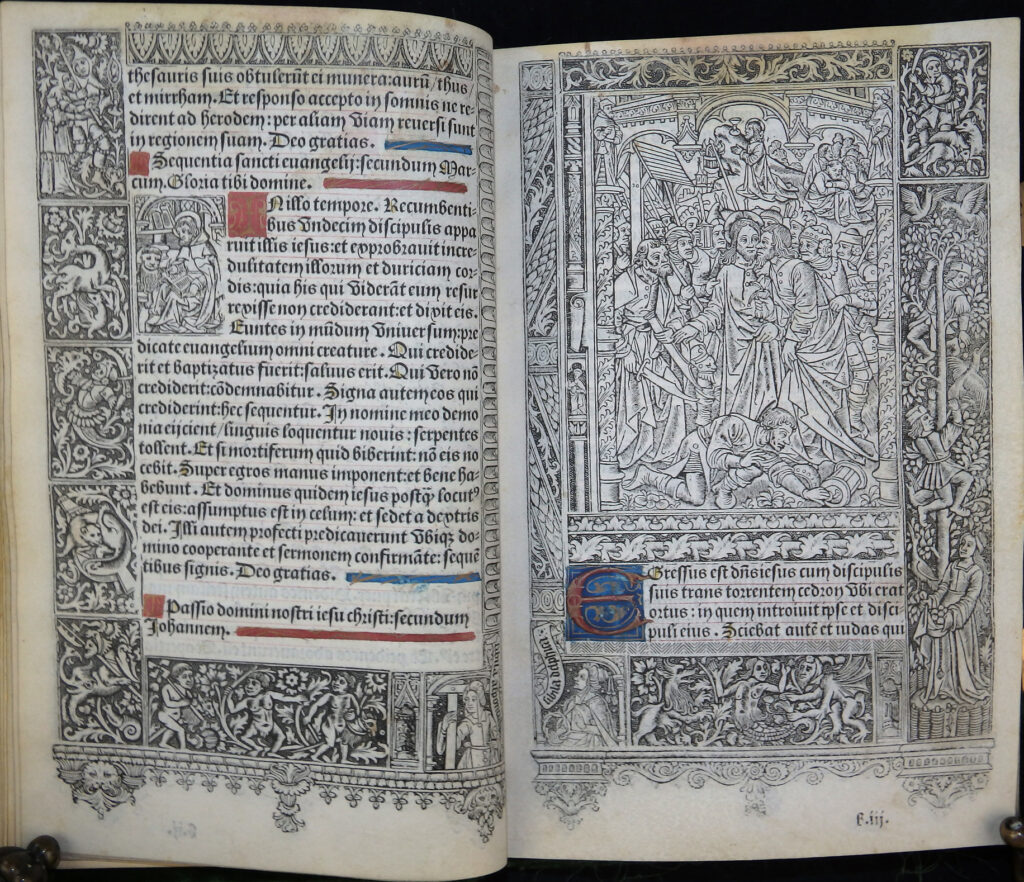 thesauris suis obtulerūt ei munera: aurū / thus
et mirrham. Et responso accepto in somnis ne re
dirent ad herodem: per aliam viam reuersi sunt
in regionem suam. Deo gratias.
Sequentia sancti euangelij: secundum Mar-
cum. Gloria tibi domine.
IN illo tempore. Recumbenti-
bus vndecim discipulis appa
ruit illis iesus: et exprobrauit incre
dulitatem illorum et duriciam cor
dis: quia his qui viderāt eum resur
rexisse non crediderant: et dixit eis.
Euntes in mūdum vniuersum: pre
dicate euangelium omni creature. Qui credide-
rit et baptizatus fuerit: saluus erit. Qui vero nō
crediderit: cōdemnabitur. Signa autem eos qui
crediderint: hec sequentur. In nomine meo demo
nia eijcient / linguis loquentur nouis: serpentes
tollent. Et si mortiferum quid biberint: nō eis no
cebit. Super egros manus imponent: et bene ha
bebunt. Et dominus quidem iesus postq̄ locutꝰ
est eis: assumptus est in celum: et sedet a dextris
dei. Illi autem profecti predicauerunt vbiqꝫ do-
mino cooperante et sermonem confirmāte: sequē
tibus signis. Deo gratias.
Passio domini nostri iesu christi: secundum
Johannem.
EGressus est dn̄s iesus cum discipulis
suis trans torrentem cedron vbi erat
ortus: in quem introiuit ipse et disci-
puli eius. Sciebat autē et iudas qui
f.iij.